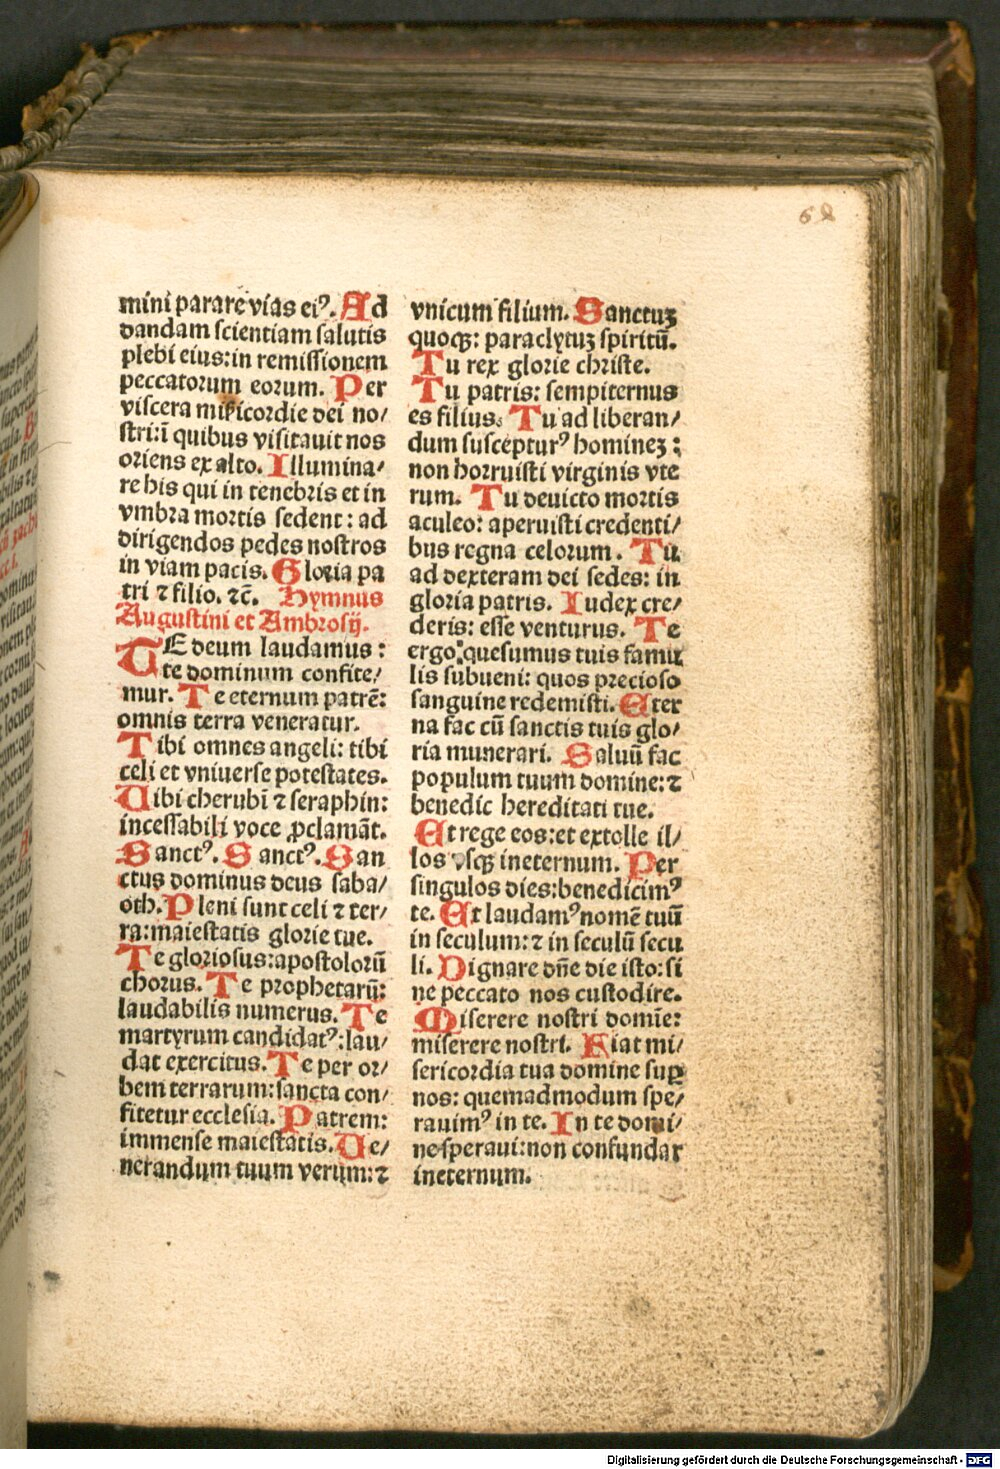 68
mini parare vias eiꝰ. Ad
dandam scientiam salutis
plebi eius: in remissionem
peccatorum eorum. Per
viscera mi\u017fericordie dei no/
stri: ī quibus visitauit nos
oriens ex alto. Illumina/
re his qui in tenebris et in
vmbra mortis sedent: ad
dirigendos pedes nostros
in viam pacis. Gloria pa
tri ⁊ filio. ⁊c̄. Hymnus
Augustini et Ambrosij.
TE deum laudamus:
te dominum confite/
mur. Te eternum patrē:
omnis terra veneratur.
Tibi omnes angeli: tibi
celi et vniuerse potestates.
Tibi cherubī ⁊ seraphin:
incessabili voce ꝓclamāt.
Sanctꝰ. Sanctꝰ. San
ctus dominus deus saba/
oth. Pleni sunt celi ⁊ ter/
ra: maiestatis glorie tue.
Te gloriosus: apostolorū
chorus. Te prophetarū:
laudabilis numerus. Te
martyrum candidatꝰ: lau/
dat exercitus. Te per or/
bem terrarum: sancta con/
fitetur ecclesia. Patrem:
immense maiestatis. Ue/
nerandum tuum verum: ⁊
vnicum filium. Sanctuꝫ
quoqꝫ: paraclytuꝫ spiritū.
Tu rex glorie christe.
Tu patris: sempiternus
es filius. Tu ad liberan/
dum suscepturꝰ homineꝫ:
non horruisti virginis vte
rum. Tu deuicto mortis
aculeo: aperuisti credenti/
bus regna celorum. Tu
ad dexteram dei sedes: in
gloria patris. Iudex cre/
deris: esse venturus. Te
ergo quesumus tuis famu
lis subueni: quos precioso
sanguine redemisti. Eter
na fac cū sanctis tuis glo/
ria munerari. Saluū fac
populum tuum domine: ⁊
benedic hereditati tue.
Et rege eos: et extolle il/
los vsqꝫ in eternum. Per
singulos dies: benedicimꝰ
te. Et laudamꝰ nomē tuū
in seculum: ⁊ in seculū secu
li. Dignare dn̄e die isto: si
ne peccato nos custodire.
Miserere nostri domīe:
miserere nostri. Fiat mi/
sericordia tua domine suꝑ
nos: quemadmodum spe/
rauimꝰ in te. In te domi/
ne speraui: non confundar
in eternum.
Digitalisierung gefördert durch die Deutsche Forschungsgemeinschaft - DFG